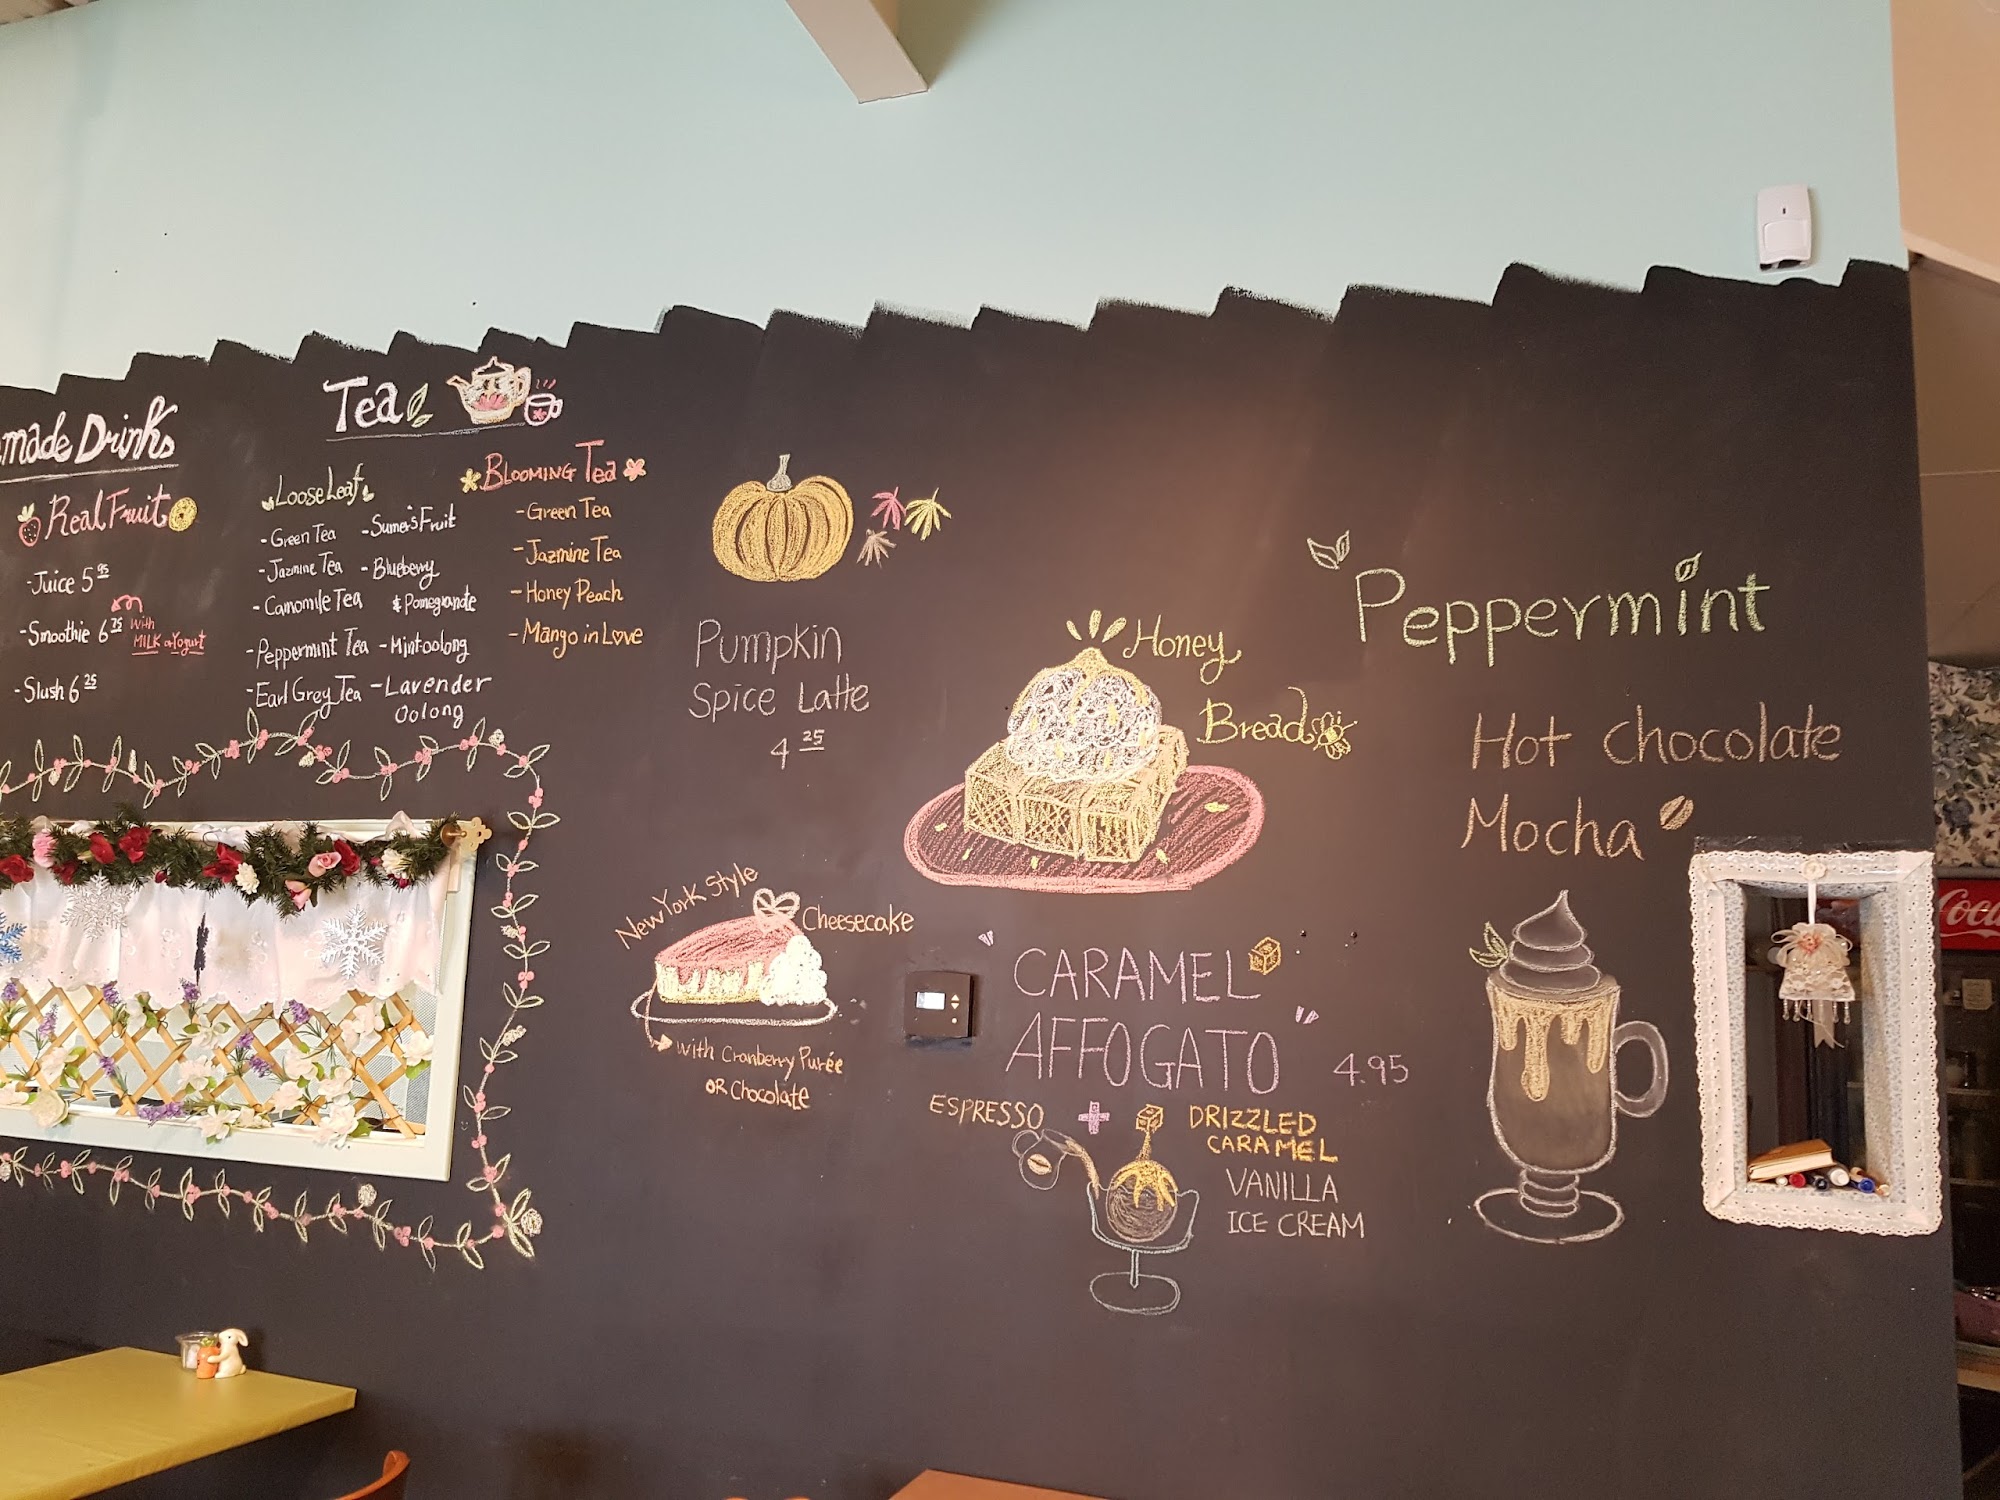 made Drinks
Real Fruit
-Juice 5 95
-Smoothie 6 75 with
MILK or Yogurt
-Slush 6 25
Tea
Loose Leaf
-Green Tea
-Jazmine Tea
-Camomile Tea
-Peppermint Tea
-Earl Grey Tea
-Sumer's Fruit
-Blueberry
& Pomegranate
-Mint-oolong
-Lavender
Oolong
BLOOMING Tea
-Green Tea
-Jazmine Tea
-Honey Peach
-Mango in Love
Pumpkin
Spice Latte
4 25
New York Style
Cheesecake
with Cranberry Purée
OR Chocolate
Honey
Bread
CARAMEL
AFFOGATO 4.95
ESPRESSO +
DRIZZLED
CARAMEL
VANILLA
ICE CREAM
Peppermint
Hot chocolate
Mocha